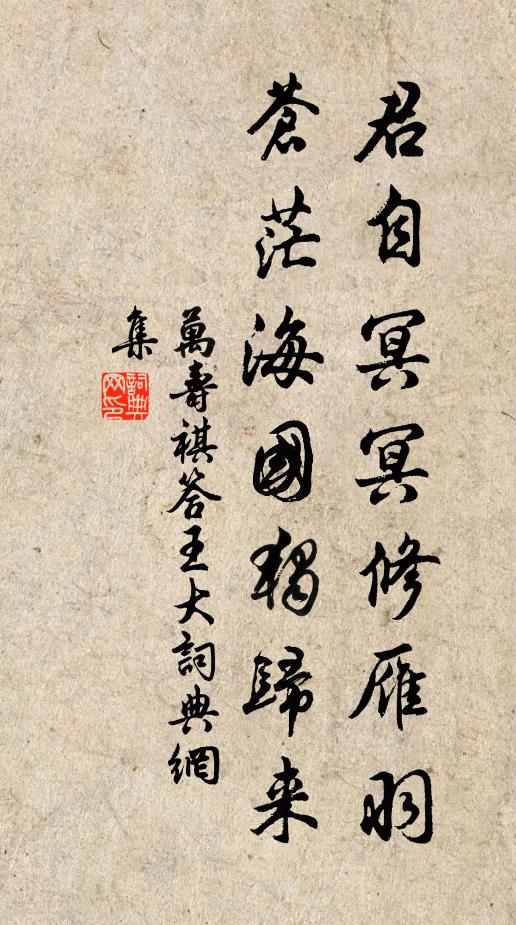 君自冥冥修雁羽
蒼茫海國獨歸来
萬壽祺答王大詞典網
集
詞典網印